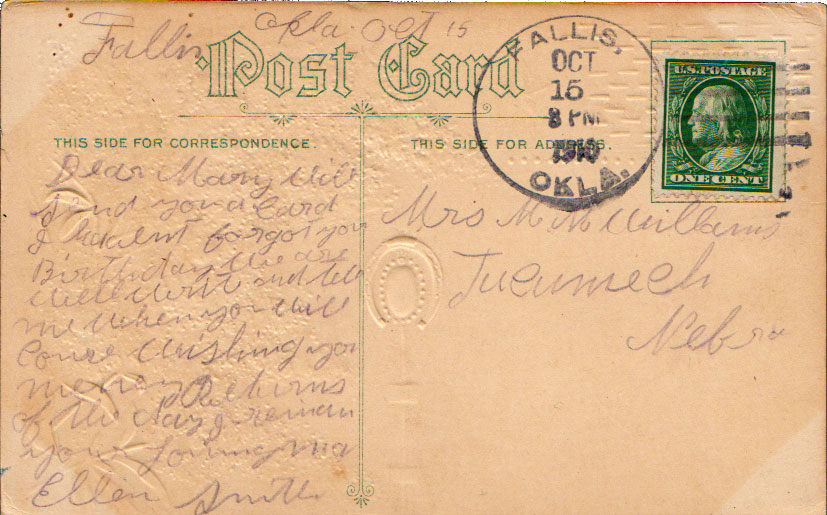 Fallis Okla. Oct 15
Post Card
THIS SIDE FOR CORRESPONDENCE.
THIS SIDE FOR ADDRESS.
FALLIS,
OCT
15
8 PM
1910
OKLA.
U.S. POSTAGE
ONE CENT
Dear Mary Will
Send you a Card
I havent forgot your
Birthday We are
Well Writ and tell
me When you Will
Come Wishing you
meney Returns
of the Day I remain
your loving ma
Ellen Smith
Mrs M M Williams
Tecumech
Nebra